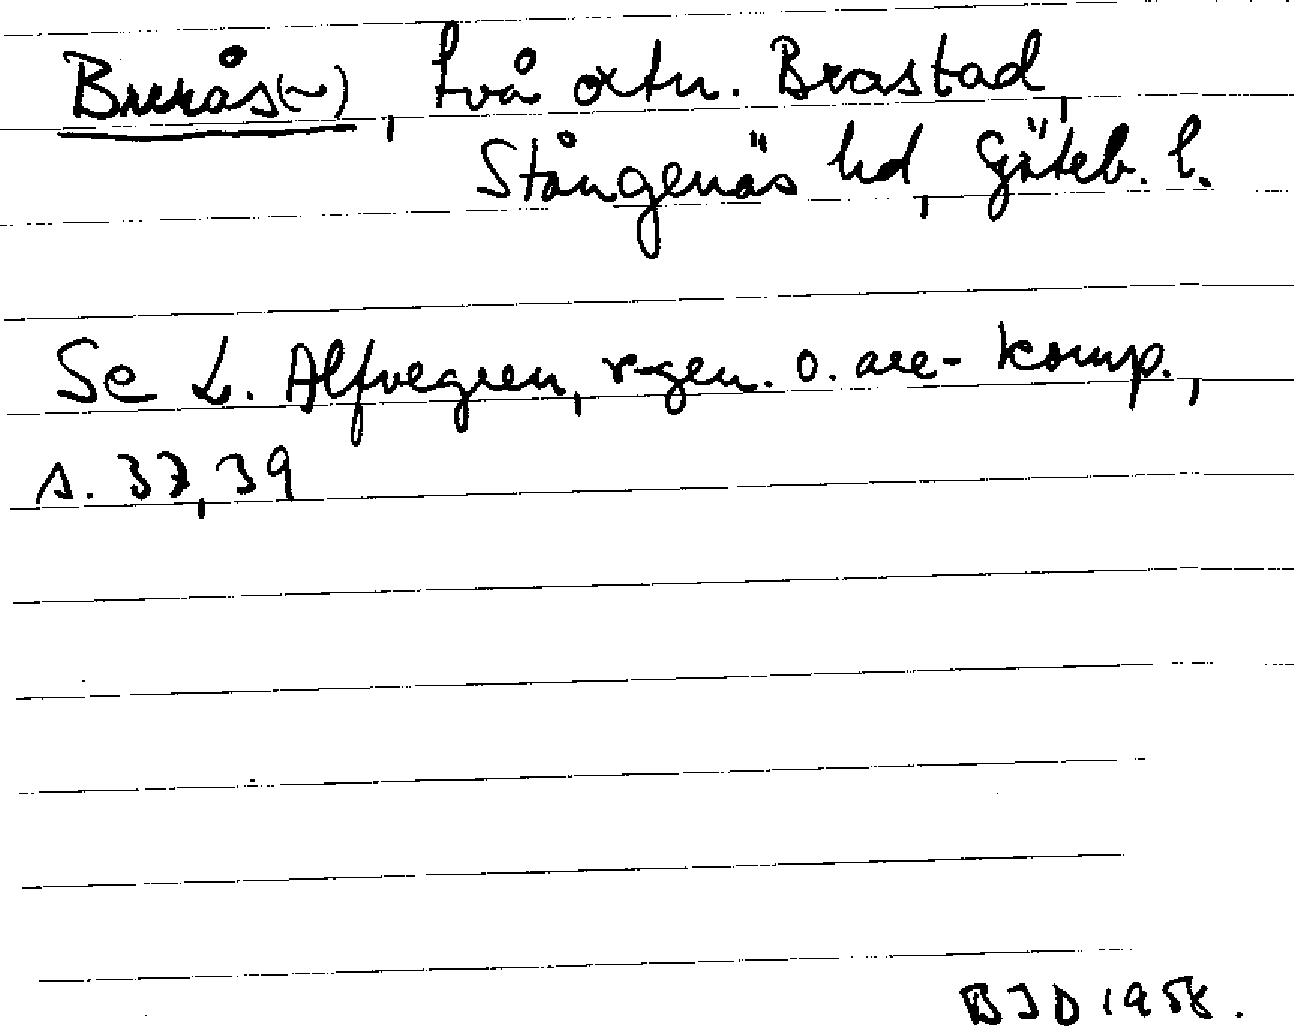 Bruås(~), två ortn. Brastad,
Stångenäs hd, Göteb. l.
Se L. Alfvegren, r-gen. o. are-komp.,
s. 37, 39
BJD 1958.